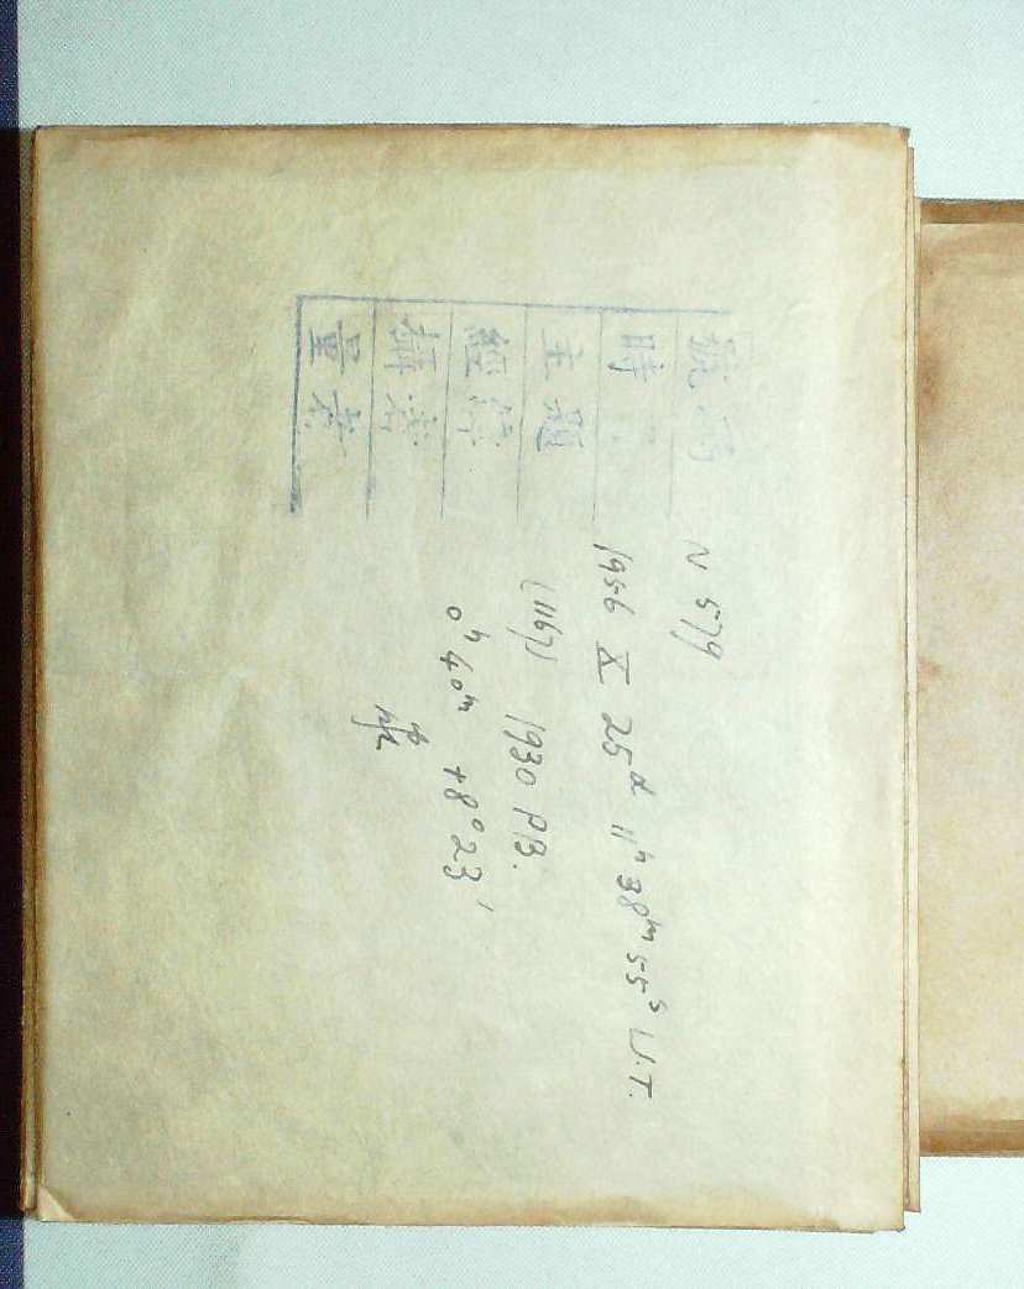 號碼 N 579
時間 1956 X 25ᵈ 11ʰ 38ᵐ 55ˢ U.T.
主題 (1167) 1930 PB.
經緯 0ʰ 40ᵐ +8° 23′
攝者
量者